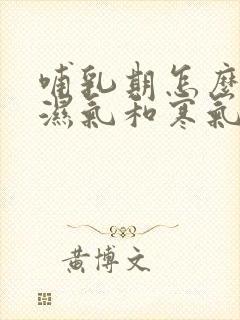 哺乳期怎麼
濕氣和寒氣
黃博文